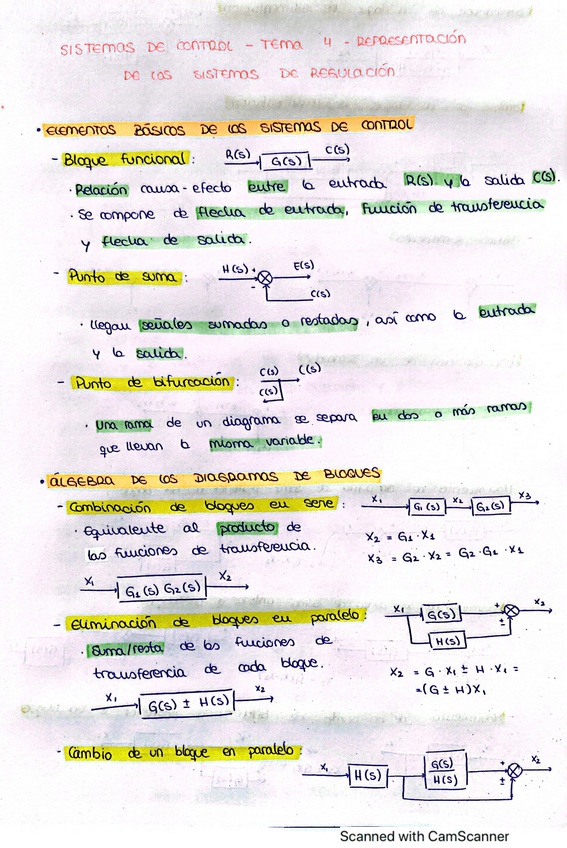 SISTEMAS DE CONTROL - TEMA 4 - REPRESENTACIÓN
DE LOS SISTEMAS DE REGULACIÓN
• ELEMENTOS BÁSICOS DE LOS SISTEMAS DE CONTROL
- Bloque funcional: R(s) G(s) C(s)
· Relación causa-efecto entre la entrada R(s) y la salida C(s).
· Se compone de flecha de entrada, función de transferencia
y flecha de salida.
- Punto de suma: H(s) + - E(s)
C(s)
· llegan señales sumadas o restadas, así como la entrada
y la salida.
- Punto de bifurcación: C(s) C(s)
C(s)
· una rama de un diagrama se separa en dos o más ramas
que llevan la misma variable.
• ÁLGEBRA DE LOS DIAGRAMAS DE BLOQUES
- Combinación de bloques en serie: X1 G1(s) X2 G2(s) X3
· Equivalente al producto de
las funciones de transferencia.
X2 = G1 · X1
X3 = G2 · X2 = G2 · G1 · X1
X1 G1(s) G2(s) X2
- Eliminación de bloques en paralelo: X1 G(s) + X2
H(s) ±
· Suma/resta de las funciones de
transferencia de cada bloque.
X2 = G · X1 ± H · X1 =
=(G ± H)X1
X1 G(s) ± H(s) X2
- Cambio de un bloque en paralelo:
X1 H(s) G(s) H(s) + ± X2
Scanned with CamScanner